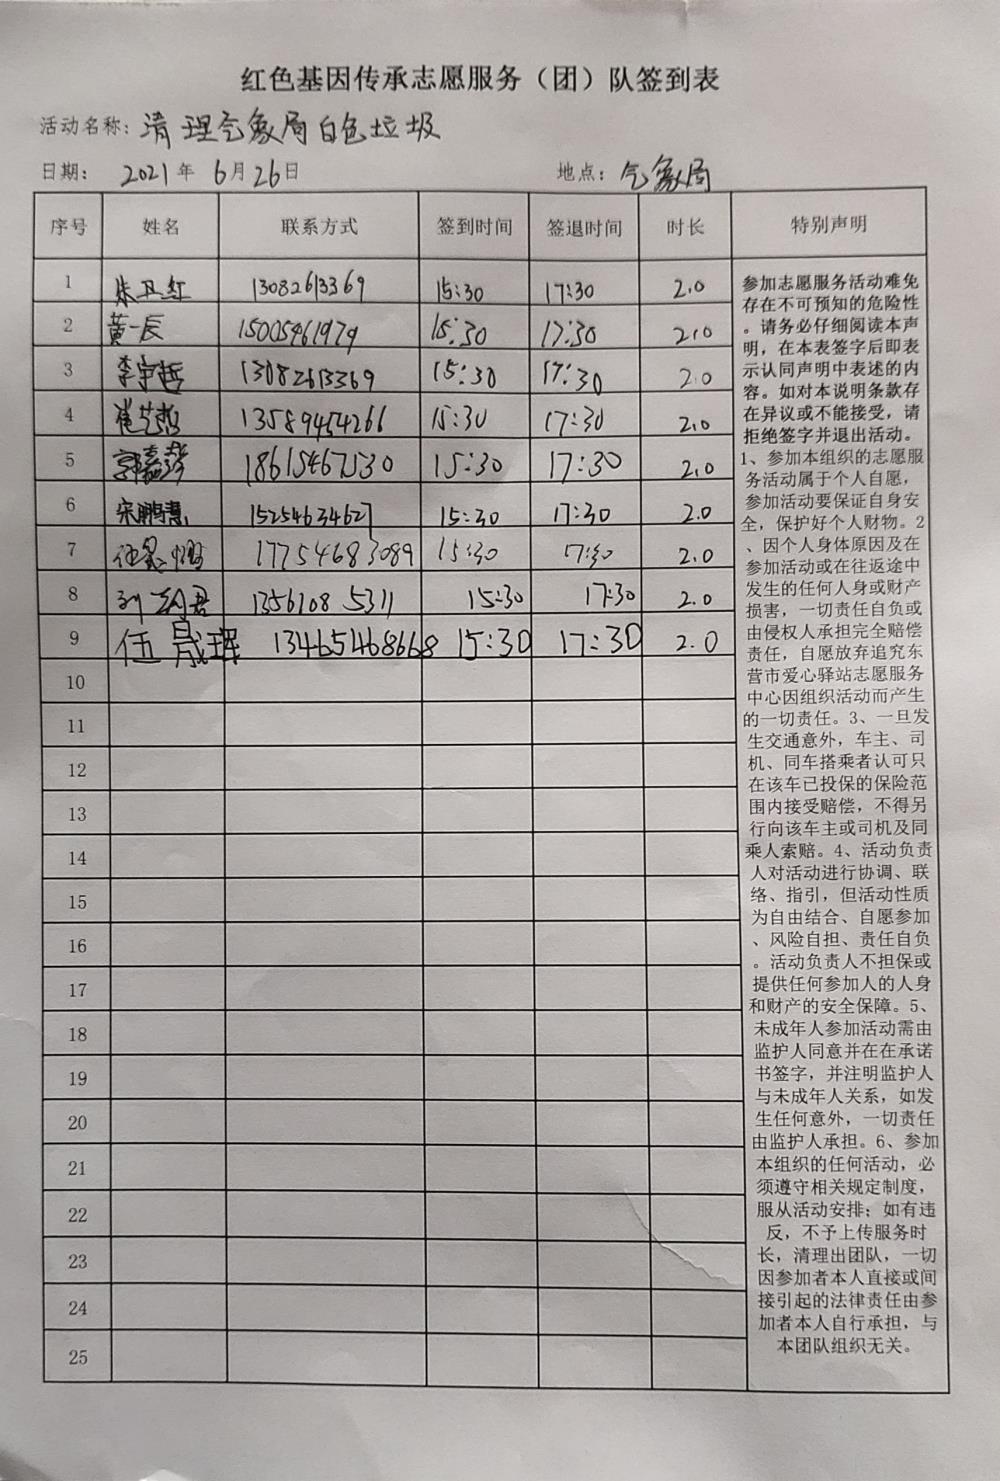 红色基因传承志愿服务（团）队签到表
活动名称：清理气象局白色垃圾
日期： 2021年 6月26日 地点：气象局
序号 姓名 联系方式 签到时间 签退时间 时长 特别声明
1 朱卫红 13082613369 15:30 17:30 2.0
2 黄一辰 15005461979 15:30 17:30 2.0
3 李宇哲 13082613369 15:30 17:30 2.0
4 崔艺哲 13589454266 15:30 17:30 2.0
5 郭嘉 18615467530 15:30 17:30 2.0
6 宋鹏慧 15254634627 15:30 17:30 2.0
7 17754683089 15:30 17:30 2.0
8 刘 君 13561085311 15:30 17:30 2.0
9 伍晟珲 13465468668 15:30 17:30 2.0
10
11
12
13
14
15
16
17
18
19
20
21
22
23
24
25
参加志愿服务活动难免
存在不可预知的危险性
。请务必仔细阅读本声
明，在本表签字后即表
示认同声明中表述的内
容。如对本说明条款存
在异议或不能接受，请
拒绝签字并退出活动。
1、参加本组织的志愿服
务活动属于个人自愿，
参加活动要保证自身安
全，保护好个人财物。2
、因个人身体原因及在
参加活动或在往返途中
发生的任何人身或财产
损害，一切责任自负或
由侵权人承担完全赔偿
责任，自愿放弃追究东
营市爱心驿站志愿服务
中心因组织活动而产生
的一切责任。3、一旦发
生交通意外，车主、司
机、同车搭乘者认可只
在该车已投保的保险范
围内接受赔偿，不得另
行向该车主或司机及同
乘人索赔。4、活动负责
人对活动进行协调、联
络、指引，但活动性质
为自由结合、自愿参加
、风险自担、责任自负
。活动负责人不担保或
提供任何参加人的人身
和财产的安全保障。5、
未成年人参加活动需由
监护人同意并在在承诺
书签字，并注明监护人
与未成年人关系，如发
生任何意外，一切责任
由监护人承担。6、参加
本组织的任何活动，必
须遵守相关规定制度，
服从活动安排；如有违
反，不予上传服务时
长，清理出团队，一切
因参加者本人直接或间
接引起的法律责任由参
加者本人自行承担，与
本团队组织无关。